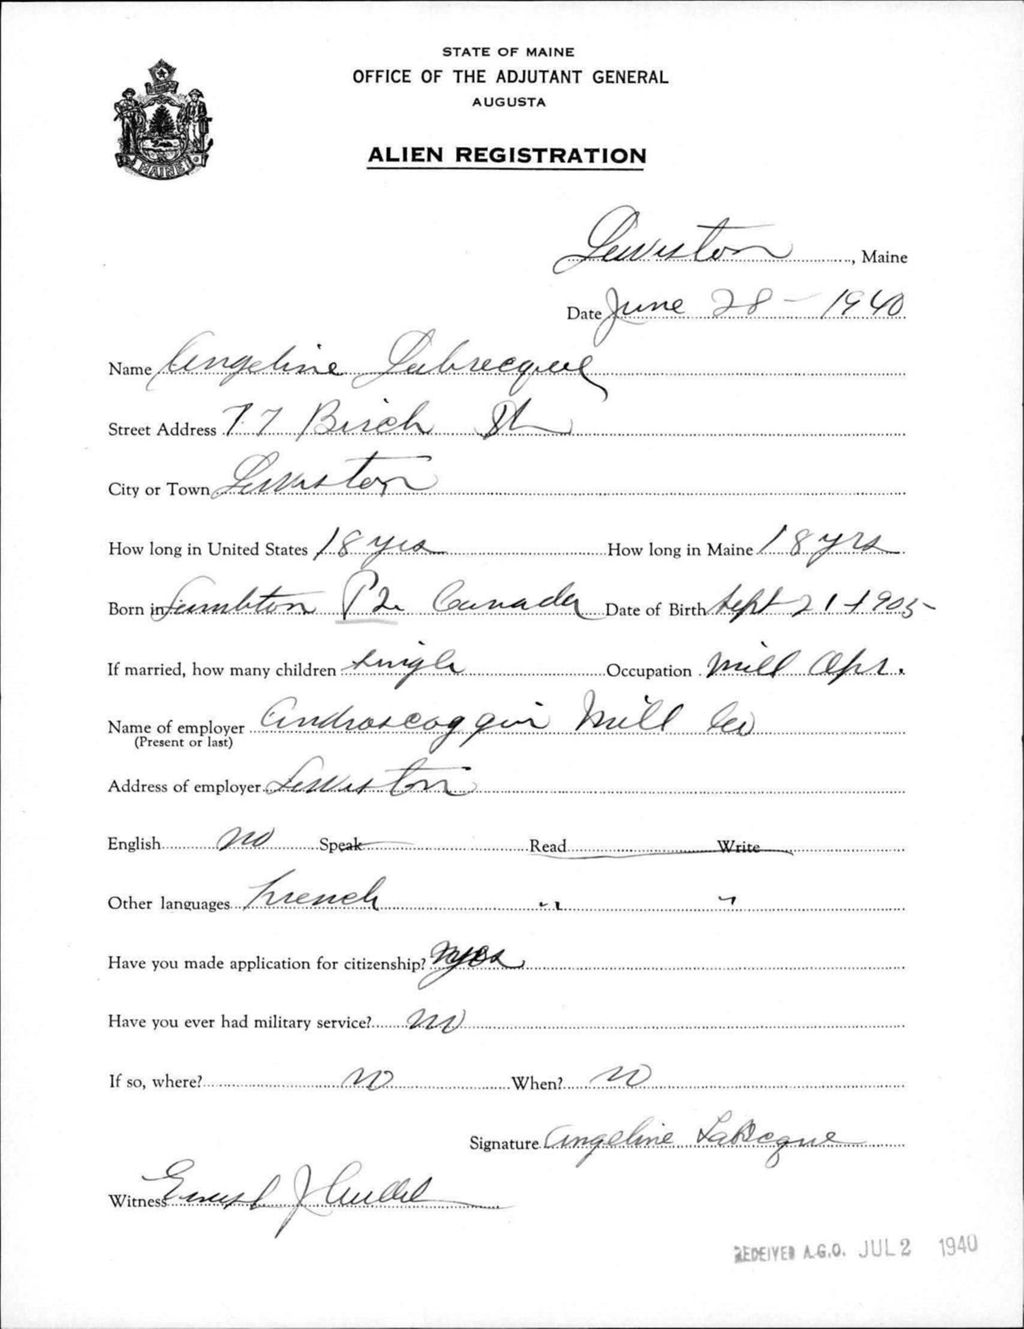 STATE OF MAINE
OFFICE OF THE ADJUTANT GENERAL
AUGUSTA
MAINE
ALIEN REGISTRATION
Lewiston, Maine
Date June 28 - 1940
Name Angeline Labrecque
Street Address 77 Birch St
City or Town Lewiston
How long in United States 18 yrs How long in Maine 18 yrs
Born in Lambton P2 Canada Date of Birth Sept 21 - 1905
If married, how many children single Occupation Mill Opr.
Name of employer Androscoggin Mill Co
(Present or last)
Address of employer Lewiston
English no Speak Read Write
Other languages French " "
Have you made application for citizenship? yes
Have you ever had military service? no
If so, where? no When? no
Signature Angeline LaBecque
Witness Ernest J
RECEIVED A.G.O. JUL 2 1940